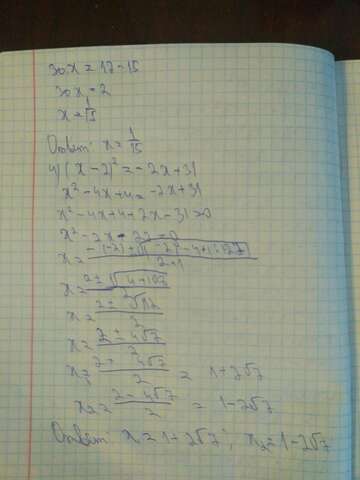 30x = 17-15
30x = 2
x = 1/15
Ответ: x = 1/15
4) (x-2)² = -2x+31
x² - 4x+4 = -2x+31
x² - 4x+4+2x-31=0
x² - 2x - 27 = 0
x = (-(-2)±√((-2)²-4·1·(-27)))/(2·1)
x = (2±√(4+108))/2
x = (2±√112)/2
x = (2±4√7)/2
x₁ = (2+4√7)/2 = 1+2√7
x₂ = (2-4√7)/2 = 1-2√7
Ответ: x = 1+2√7; x₂ = 1-2√7